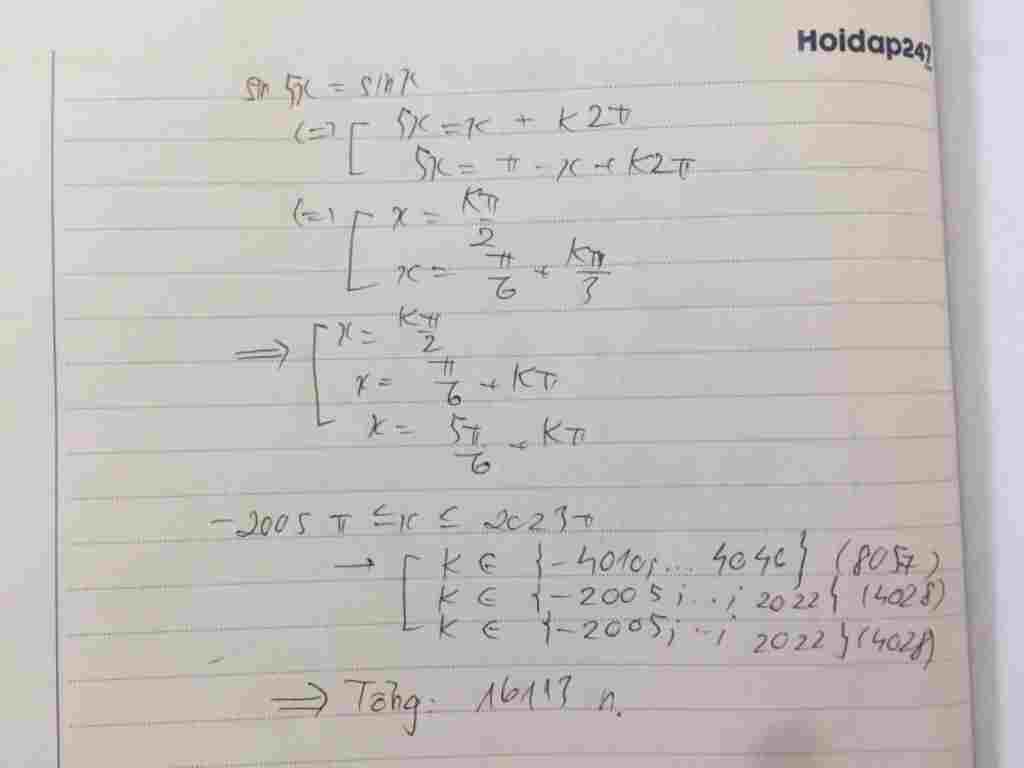 Hoidap247
sin 5x = sinx
(=) [ 5x = x + k2π
5x = π - x + k2π
(=) [ x = kπ/2
x = π/6 + kπ/3
=> [ x = kπ/2
x = π/6 + kπ
x = 5π/6 + kπ
-2005 π ≤ x ≤ 2023π
→ [ K ∈ {-4010;... 4046} (8057)
K ∈ {-2005;...; 2022} (4028)
K ∈ {-2005;...; 2022} (4028)
=> Tổng: 16113 n.